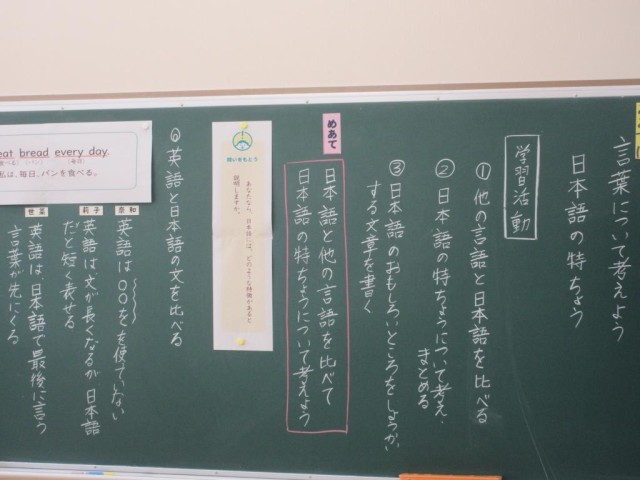 言葉について考えよう
日本語の特ちょう
学習活動
①他の言語と日本語を比べる
②日本語の特ちょうについて考え、
まとめる
③日本語のおもしろいところをしょうかい
する文章を書く
めあて
日本語と他の言語を比べて
日本語の特ちょうについて考えよう
問いをもとう
あなたなら、日本語には、どのような特徴があると
説明しますか。
◎英語と日本語の文を比べる
eat bread every day.
(パン)
(毎日)
私は、毎日、パンを食べる。
奈和
英語は○○をを使ていない
莉子
英語は文が長くなるが日本語
だと短く表せる
世菜
英語は日本語で最後に言う
言葉が先にくる